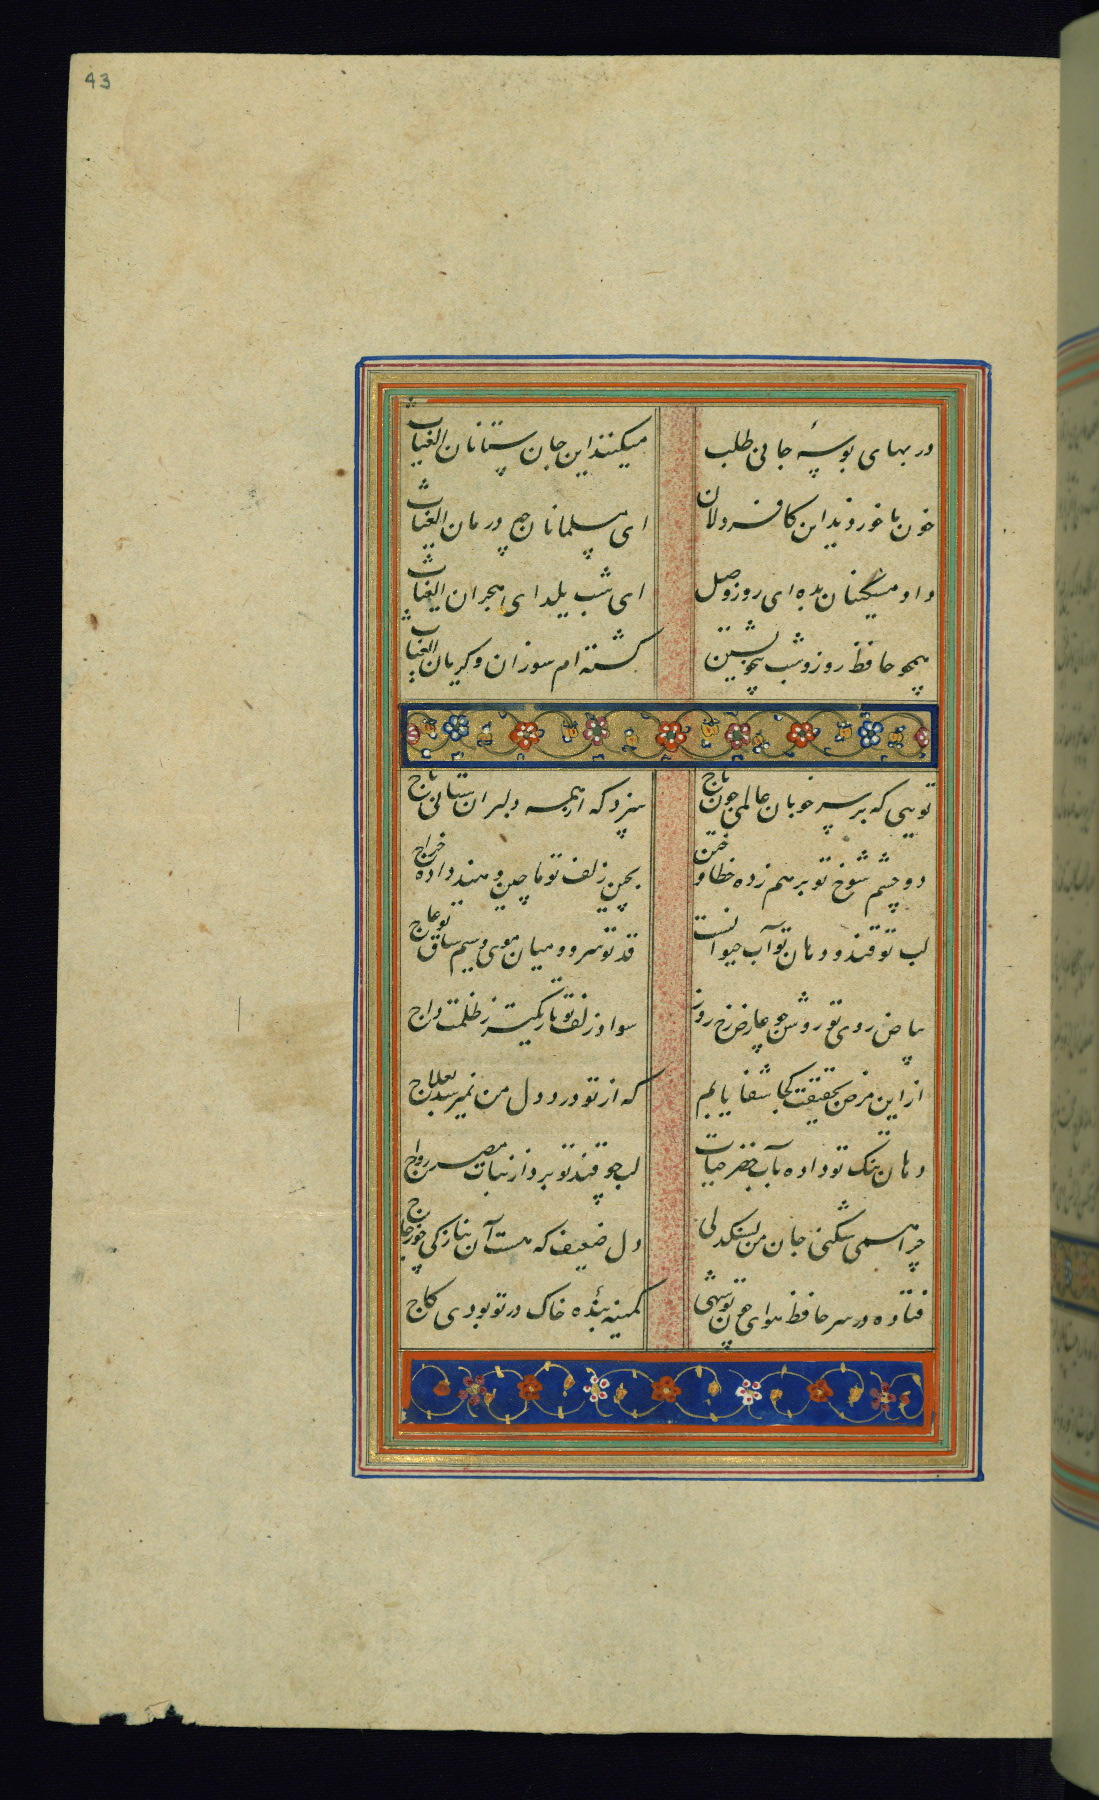 43
در بهای بوسهٔ جانی طلب میکنند این جان ستانان الغیاث
خون ما خوردند این کافر دلان ای مسلمانان چه درمان الغیاث
داد مسکینان بده ای روز وصل ای شب یلدای هجران الغیاث
همچو حافظ روز و شب بیخویشتن گشته ام سوزان و گریان الغیاث
تویی که بر سر خوبان عالمی چون تاج سزد که از همه دلبران ستانی باج
دو چشم شوخ تو بر هم زده خطا و ختن بچین زلف تو ماچین و هند داده خراج
لب تو قند و دهان تو آب حیوانست قد تو سرو و میان موی و سیم ساق تو عاج
بیاض روی تو روشن چو عارض رخ روز سواد زلف تو تاریکتر ز ظلمت داج
از این مرض بحقیقت کجا شفا یابم که از تو درد دل من نمیرسد بعلاج
دهان تنک تو داده بآب خضر حیات لب چو قند تو برد از نبات مصر رواج
چرا همی شکنی جان من بسنکدلی دل ضعیف که هست آن بنازکی چو زجاج
فتاده در سر حافظ هوای چون تو شهی کمینه بندهٔ خاک در تو بودی کاج